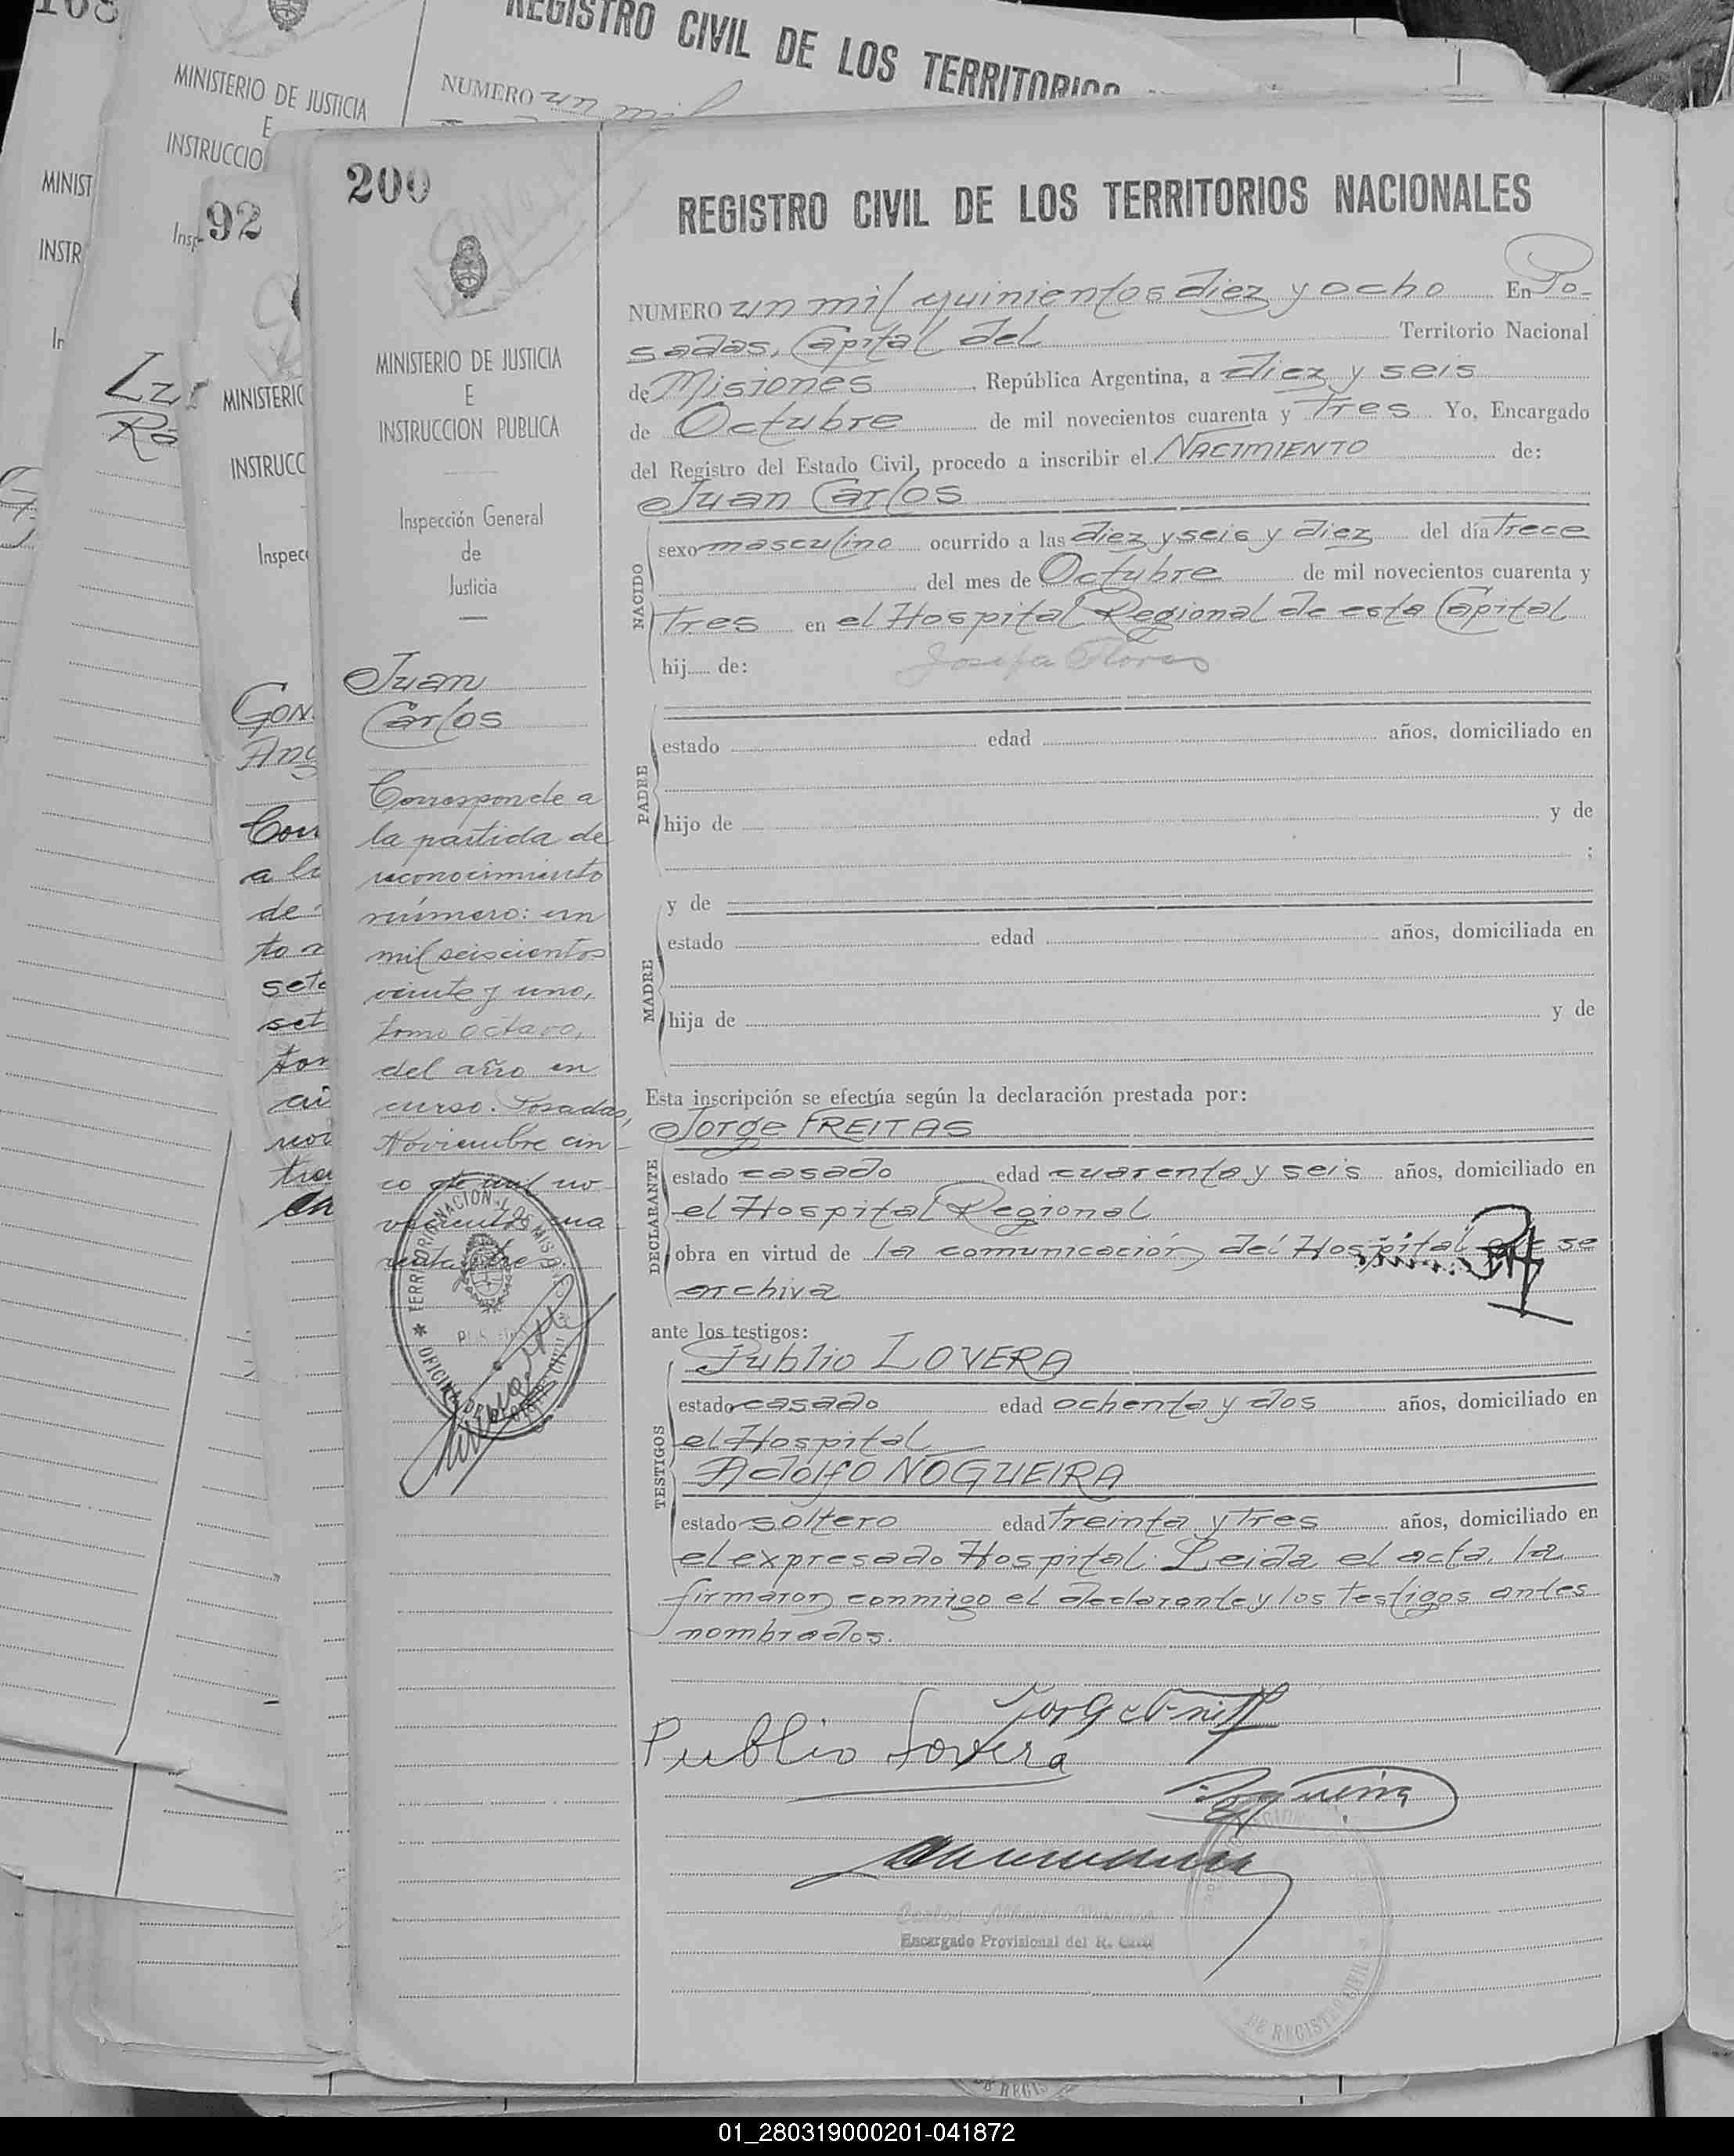 REGISTRO CIVIL DE LOS
MINISTERIO DE JUSTICIA
E
NUMERO un mil
MINIST
INSTR
92
MINISTERIO
INSTRUCC
Inspec
200
MINISTERIO DE JUSTICIA
E
INSTRUCCION PUBLICA
Inspección General
de
Justicia
Juan
Carlos
Corresponde a
la partida de
reconocimiento
número: un
mil seiscientos
veinte y uno,
tomo octavo,
del año en
curso. Posadas,
Noviembre cin
co de mil no-
vecientos cua
renta y tres.
REGISTRO CIVIL DE LOS TERRITORIOS NACIONALES
NUMERO un mil quinientos diez y ocho En Po-
sadas, Capital del Territorio Nacional
de Misiones, República Argentina, a diez y seis
de Octubre de mil novecientos cuarenta y Tres Yo, Encargado
del Registro del Estado Civil, procedo a inscribir el NACIMIENTO de:
Juan Carlos
NACIDO
sexo masculino ocurrido a las diez y seis y diez del día Trece
del mes de Octubre de mil novecientos cuarenta y
Tres en el Hospital Regional de esta Capital
hij de: Josefa Flores
PADRE
estado edad años, domiciliado en
hijo de y de
;
MADRE
y de
estado edad años, domiciliada en
hija de y de
Esta inscripción se efectúa según la declaración prestada por:
Jorge FREITAS
DECLARANTE
estado casado edad cuarenta y seis años, domiciliado en
el Hospital Regional
obra en virtud de la comunicación del Hospital que se
archiva
ante los testigos:
TESTIGOS
Publio LOVERA
estado casado edad ochenta y dos años, domiciliado en
el Hospital
Adolfo NOGUEIRA
estado soltero edad Treinta y Tres años, domiciliado en
el expresado Hospital. Leida el acta, la
firmaron conmigo el declarante y los Testigos antes
nombrados.
Publio Lovera
Carlos
Encargado Provisional del R. Civil
01_280319000201-041872